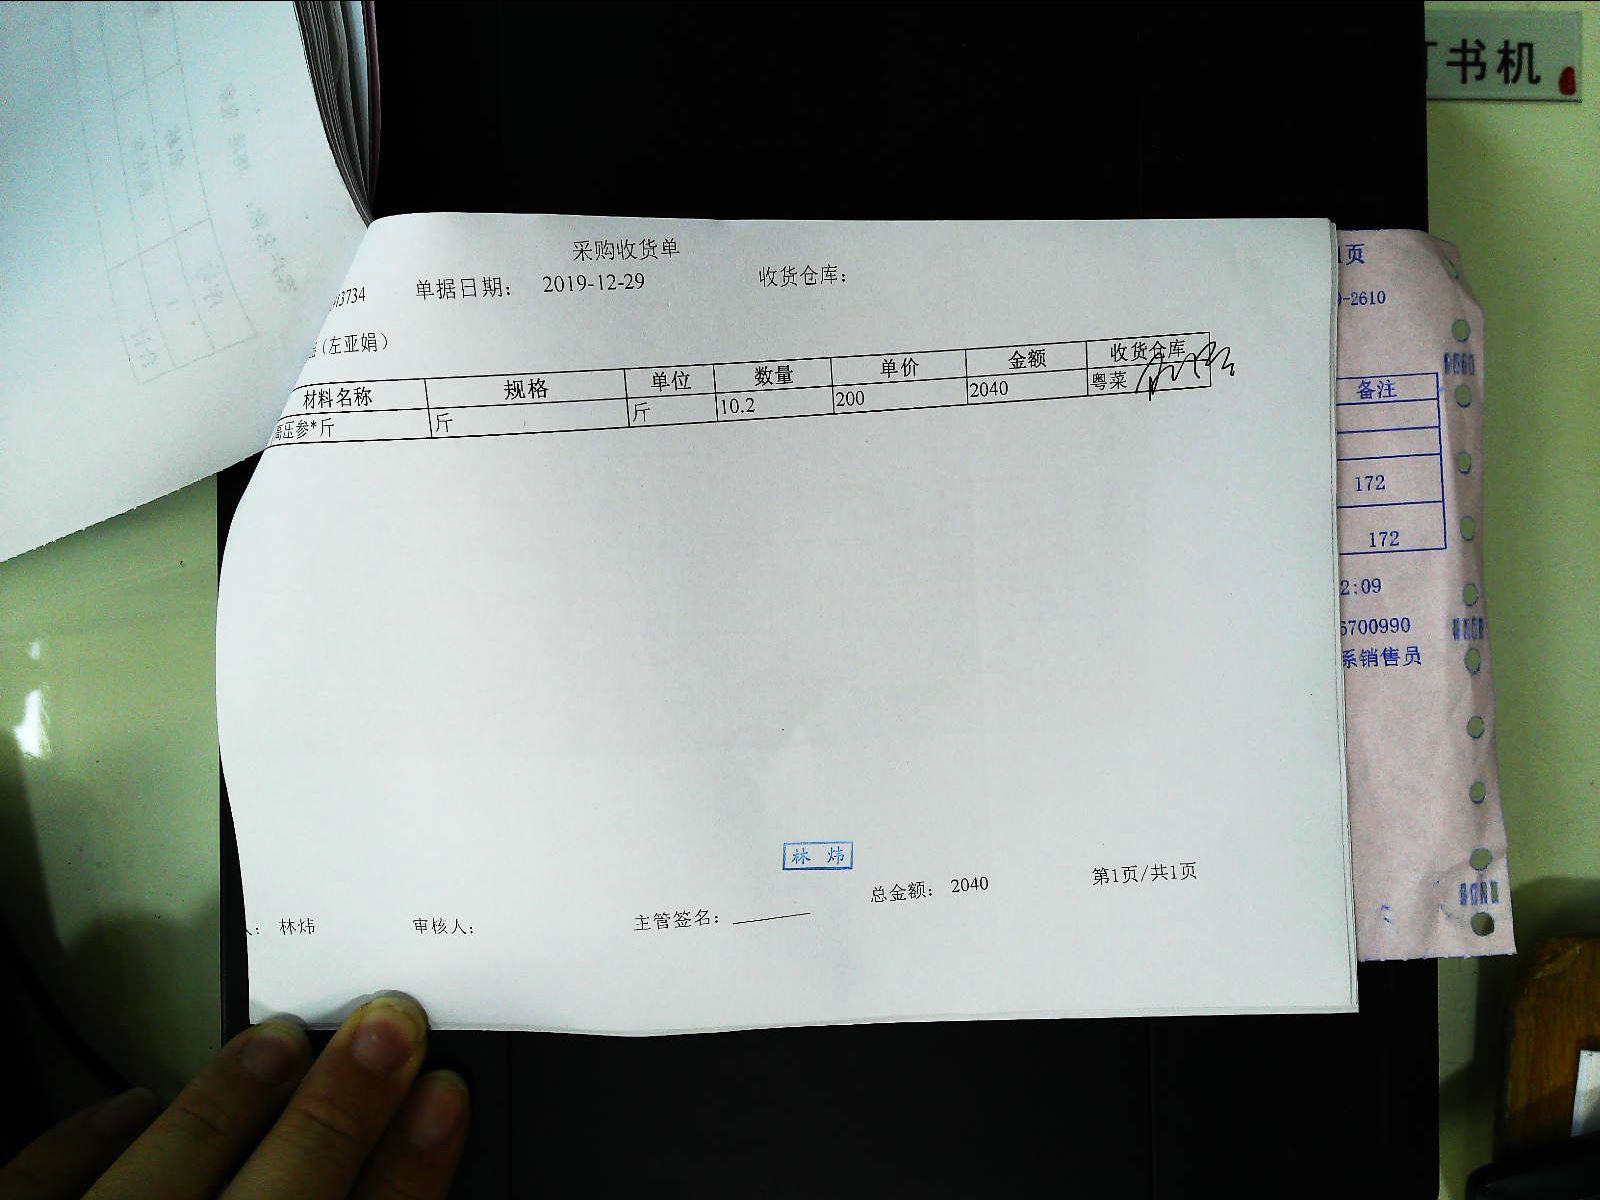 书机
采购收货单
13734 单据日期： 2019-12-29 收货仓库：
(左亚娟)
材料名称 规格 单位 数量 单价 金额 收货仓库
高压参*斤 斤 斤 10.2 200 2040 粤菜
林 炜
总金额： 2040 第1页/共1页
人： 林炜 审核人： 主管签名：
1页
-2610
备注
172
172
2:09
6700990
系销售员